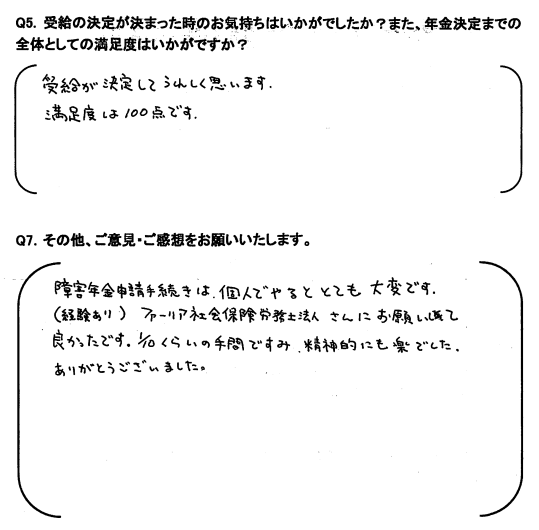 Q5. 受給の決定が決まった時のお気持ちはいかがでしたか？また、年金決定までの
全体としての満足度はいかがですか？
受給が決定してうれしく思います.
満足度は100点です.
Q7. その他、ご意見・ご感想をお願いいたします。
障害年金申請手続きは、個人でやるととても大変です.
(経験あり) ファーリア社会保険労務士法人 さんにお願い出来て
良かったです。1/10くらいの手間ですみ、精神的にも楽でした.
ありがとうございました。